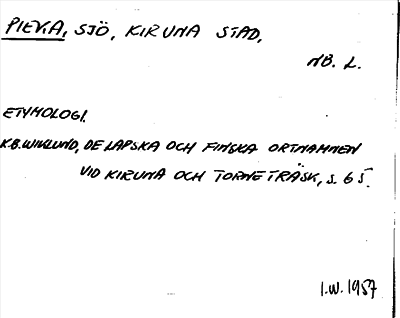 PIEVIA, SJÖ, KIRUNA STAD,
NB. L.
ETYMOLOGI.
K.B. WIKLUND, DE LAPSKA OCH FINSKA ORTNAMNEN
VID KIRUNA OCH TORNETRÄSK, S. 65.
I.W. 1957